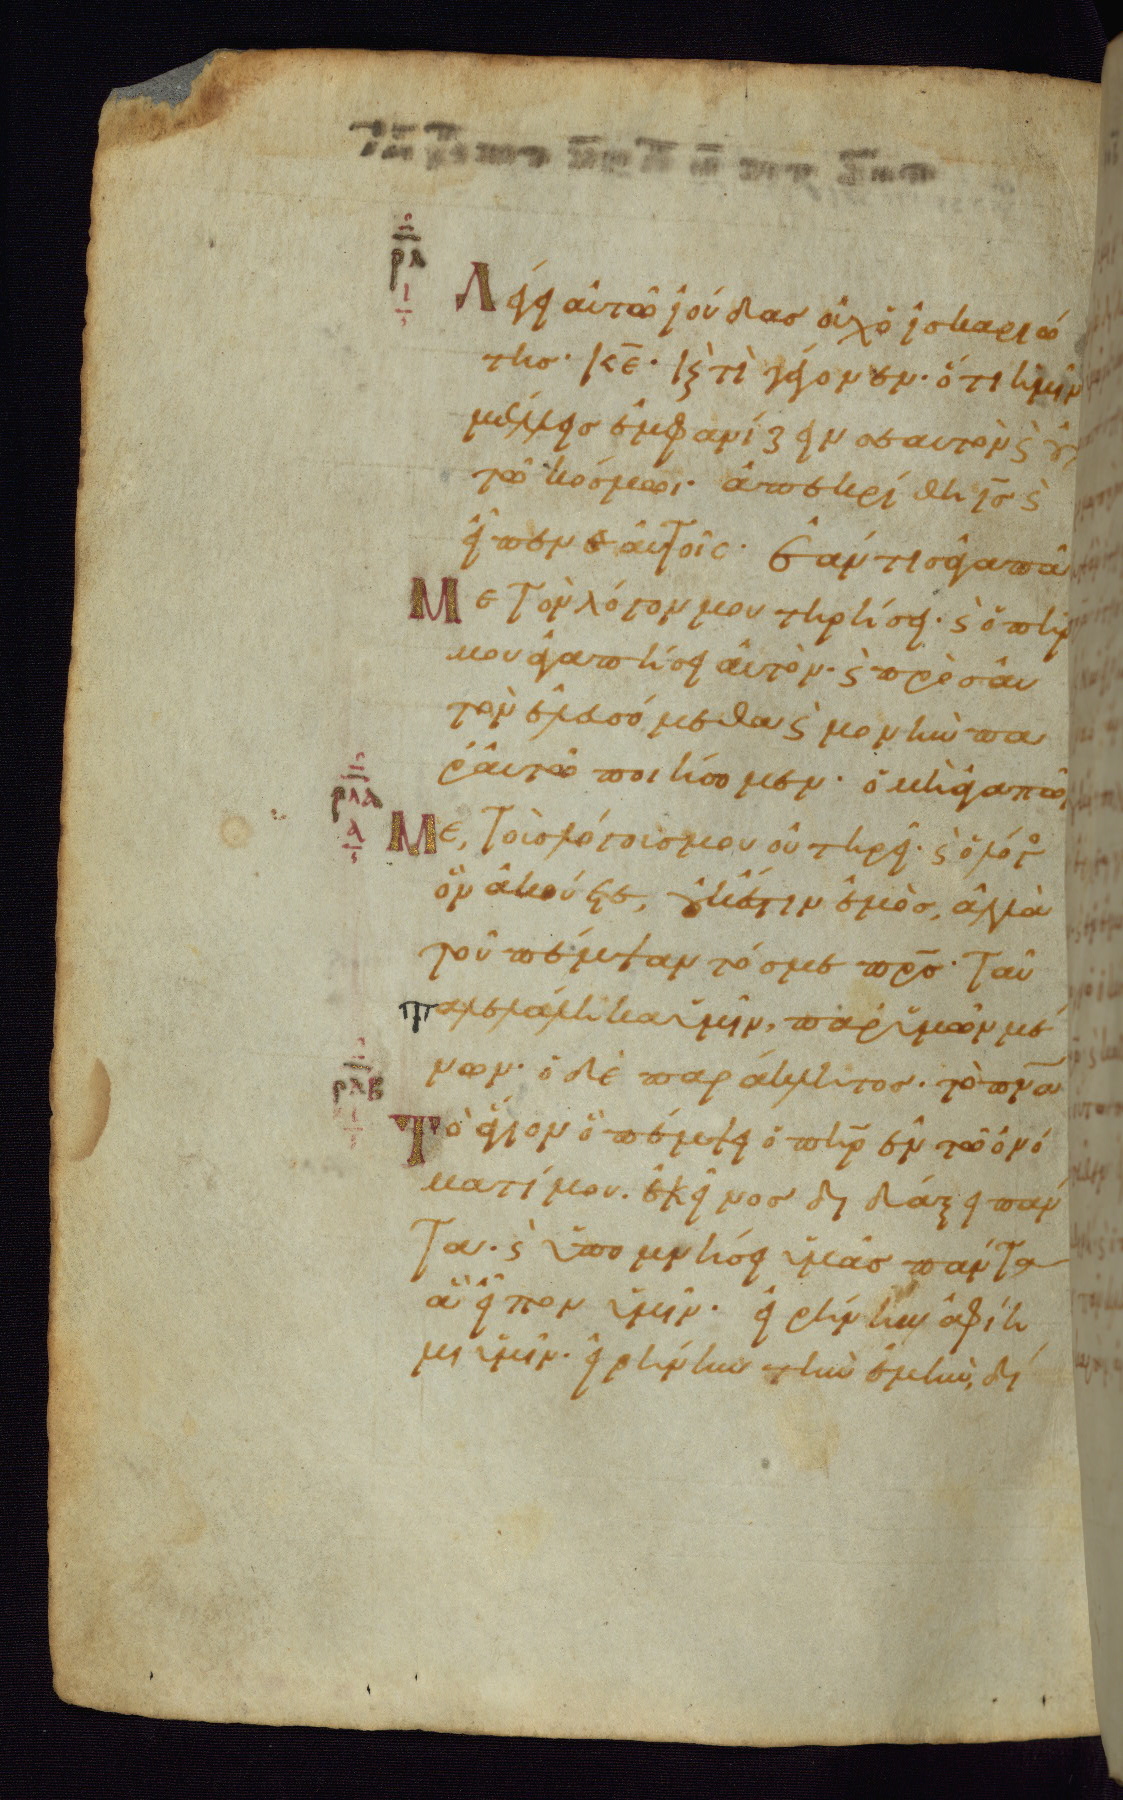 ρλ
ι
Λέγει αὐτῶ ἰούδας οὐχ ὁ ἰσκαριώ
της· κ̅ε̅· κ̀ τί γέγονεν· ὅτι ἡμῖν
μέλλεις ἐμφανίζειν σεαυτὸν κ̀ οὐχὶ
τῶ κόσμωι· ἀπεκρίθη ι̅ς̅ κ̀
εἶπεν αὐτοῖς· ἐάν τις ἀγαπᾶ
Με τὸν λόγον μου τηρήσει· κ̀ ὁ π̅η̅ρ̅
μου ἀγαπήσει αὐτόν· κ̀ πρὸς αὐ
τὸν ἐλευσόμεθα κ̀ μονὴν πα
ρ' αὐτῶ ποιήσομεν· ὁ μὴ ἀγαπῶν
ρλα
α
Με, τοὺς λόγους μου οὐ τηρεῖ· κ̀ ὁ λόγος
ὃν ἀκούετε, οὐκ ἔστιν ἐμὸς, ἀλλὰ
τοῦ πέμψαντός με π̅ρ̅ς̅· ταῦ
τα λελάληκα ὑμῖν, παρ' ὑμῶν μέ
νων· ὁ δὲ παράκλητος· τὸ π̅ν̅α̅
ρλβ
ι
Τὸ ἅγιον ὃ πέμψει ὁ π̅η̅ρ̅ ἐν τῶ ὀνό
ματί μου. ἐκεῖνος διδάξει πάν
τα· κ̀ ὑπομνήσει ὑμᾶς πάντα
ἃ εἶπον ὑμῖν· εἰρήνην ἀφίη
μι ὑμῖν· εἰρήνην τὴν ἐμὴν, δί